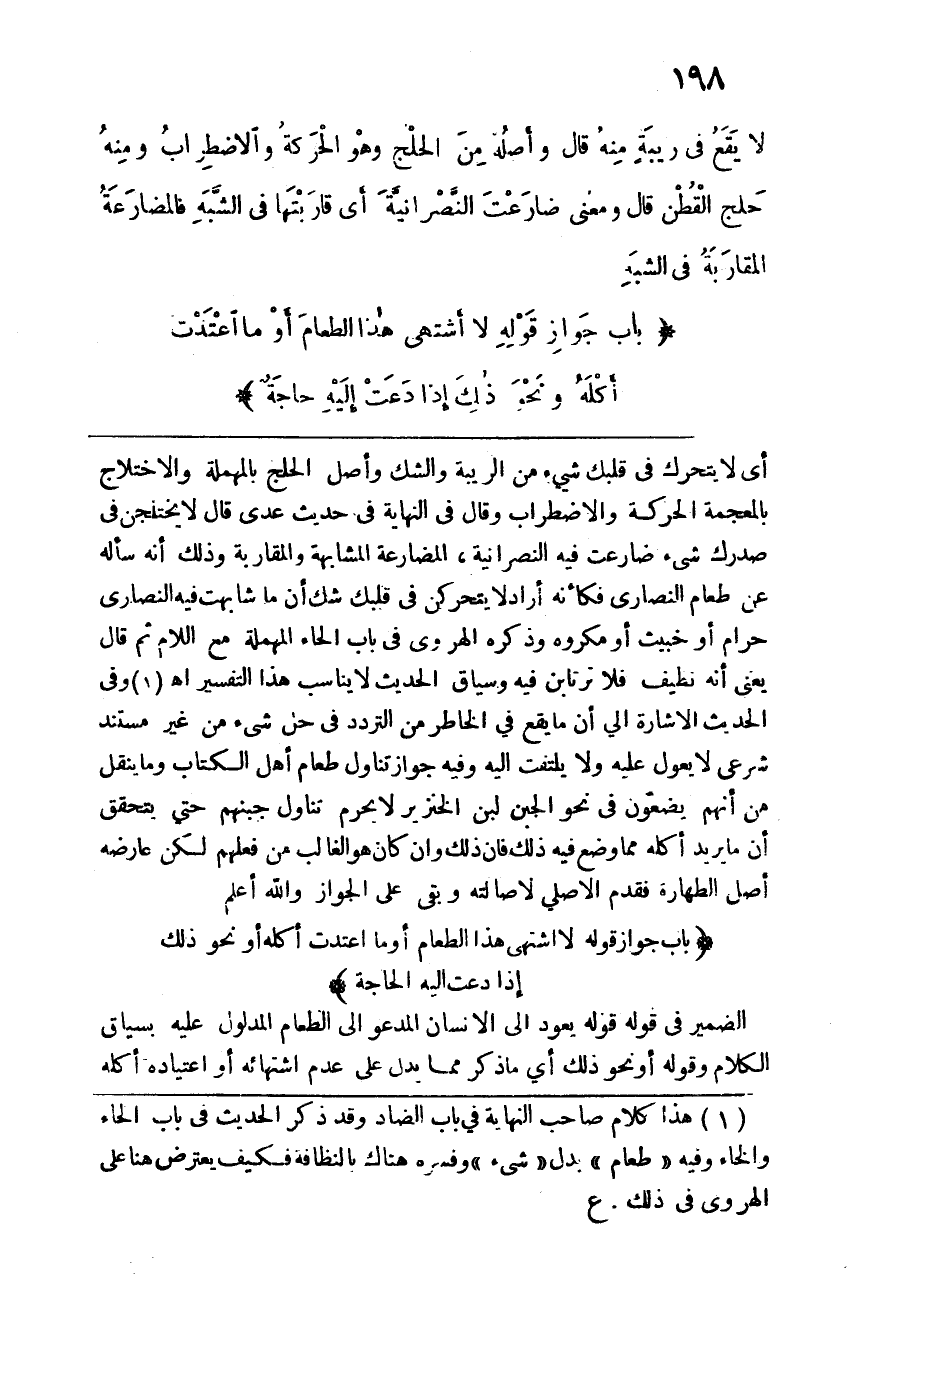 ١٩٨
لا يَقَعُ فى ريبَةٍ مِنهُ قال وأصلُهُ مِنَ الحلْجِ وهْوَ الْحَرَكَةُ وٱلاضطِرابُ ومِنهُ
حَلجِ الْقُطْنِ قال ومعنى ضارَعْتَ النَّصْرانيَّةَ أى قارَبْتَها فى الشَّبَهِ فالمضارَعَةُ
المقارَبَةُ فى الشبَهِ
﴿ باب جَوازِ قَوْلِهِ لا أشتهى هٰذا الطعامَ أوْ ما ٱعْتَدْت
أَكْلَهُ ونَحْوِ ذٰلِكَ إذا دَعَتْ إلَيْهِ حاجَةٌ ﴾
أى لايتحرك فى قلبك شيء من الريبة والشك وأصل الحلج بالمهملة والاختلاج
بالمعجمة الحركة والاضطراب وقال فى النهاية فى حديث عدى قال لايختلجن فى
صدرك شىء ضارعت فيه النصرانية ، المضارعة المشابهة والمقاربة وذلك أنه سأله
عن طعام النصارى فكأنه أراد لايتحركن فى قلبك شك أن ما شابهت فيه النصارى
حرام أو خبيث أو مكروه وذكره الهروى فى باب الحاء المهملة مع اللام ثم قال
يعنى أنه نظيف فلا ترتابن فيه وسياق الحديث لايناسب هذا التفسير اه (١) وفى
الحديث الاشارة الي أن مايقع في الخاطر من التردد فى حل شىء من غير مستند
شرعى لايعول عليه ولا يلتفت اليه وفيه جواز تناول طعام أهل الكتاب وماينقل
من أنهم يضعون فى نحو الجبن لبن الخنزير لايحرم تناول جبنهم حتي يتحقق
أن مايريد أكله مما وضع فيه ذلك فان ذلك وان كان هو الغالب من فعلهم لكن عارضه
أصل الطهارة فقدم الاصلي لاصالته وبقى على الجواز والله أعلم
﴿ باب جواز قوله لا اشتهى هذا الطعام أو ما اعتدت أكله أو نحو ذلك
إذا دعت اليه الحاجة ﴾
الضمير فى قوله قوله يعود الى الانسان المدعو الى الطعام المدلول عليه بسياق
الكلام وقوله أو نحو ذلك أي ماذكر مما يدل على عدم اشتهائه أو اعتياده أكله
(١) هذا كلام صاحب النهاية في باب الضاد وقد ذكر الحديث فى باب الحاء
والخاء وفيه « طعام » بدل « شىء » وفسره هناك بالنظافة فكيف يعترض هنا على
الهروى فى ذلك . ع